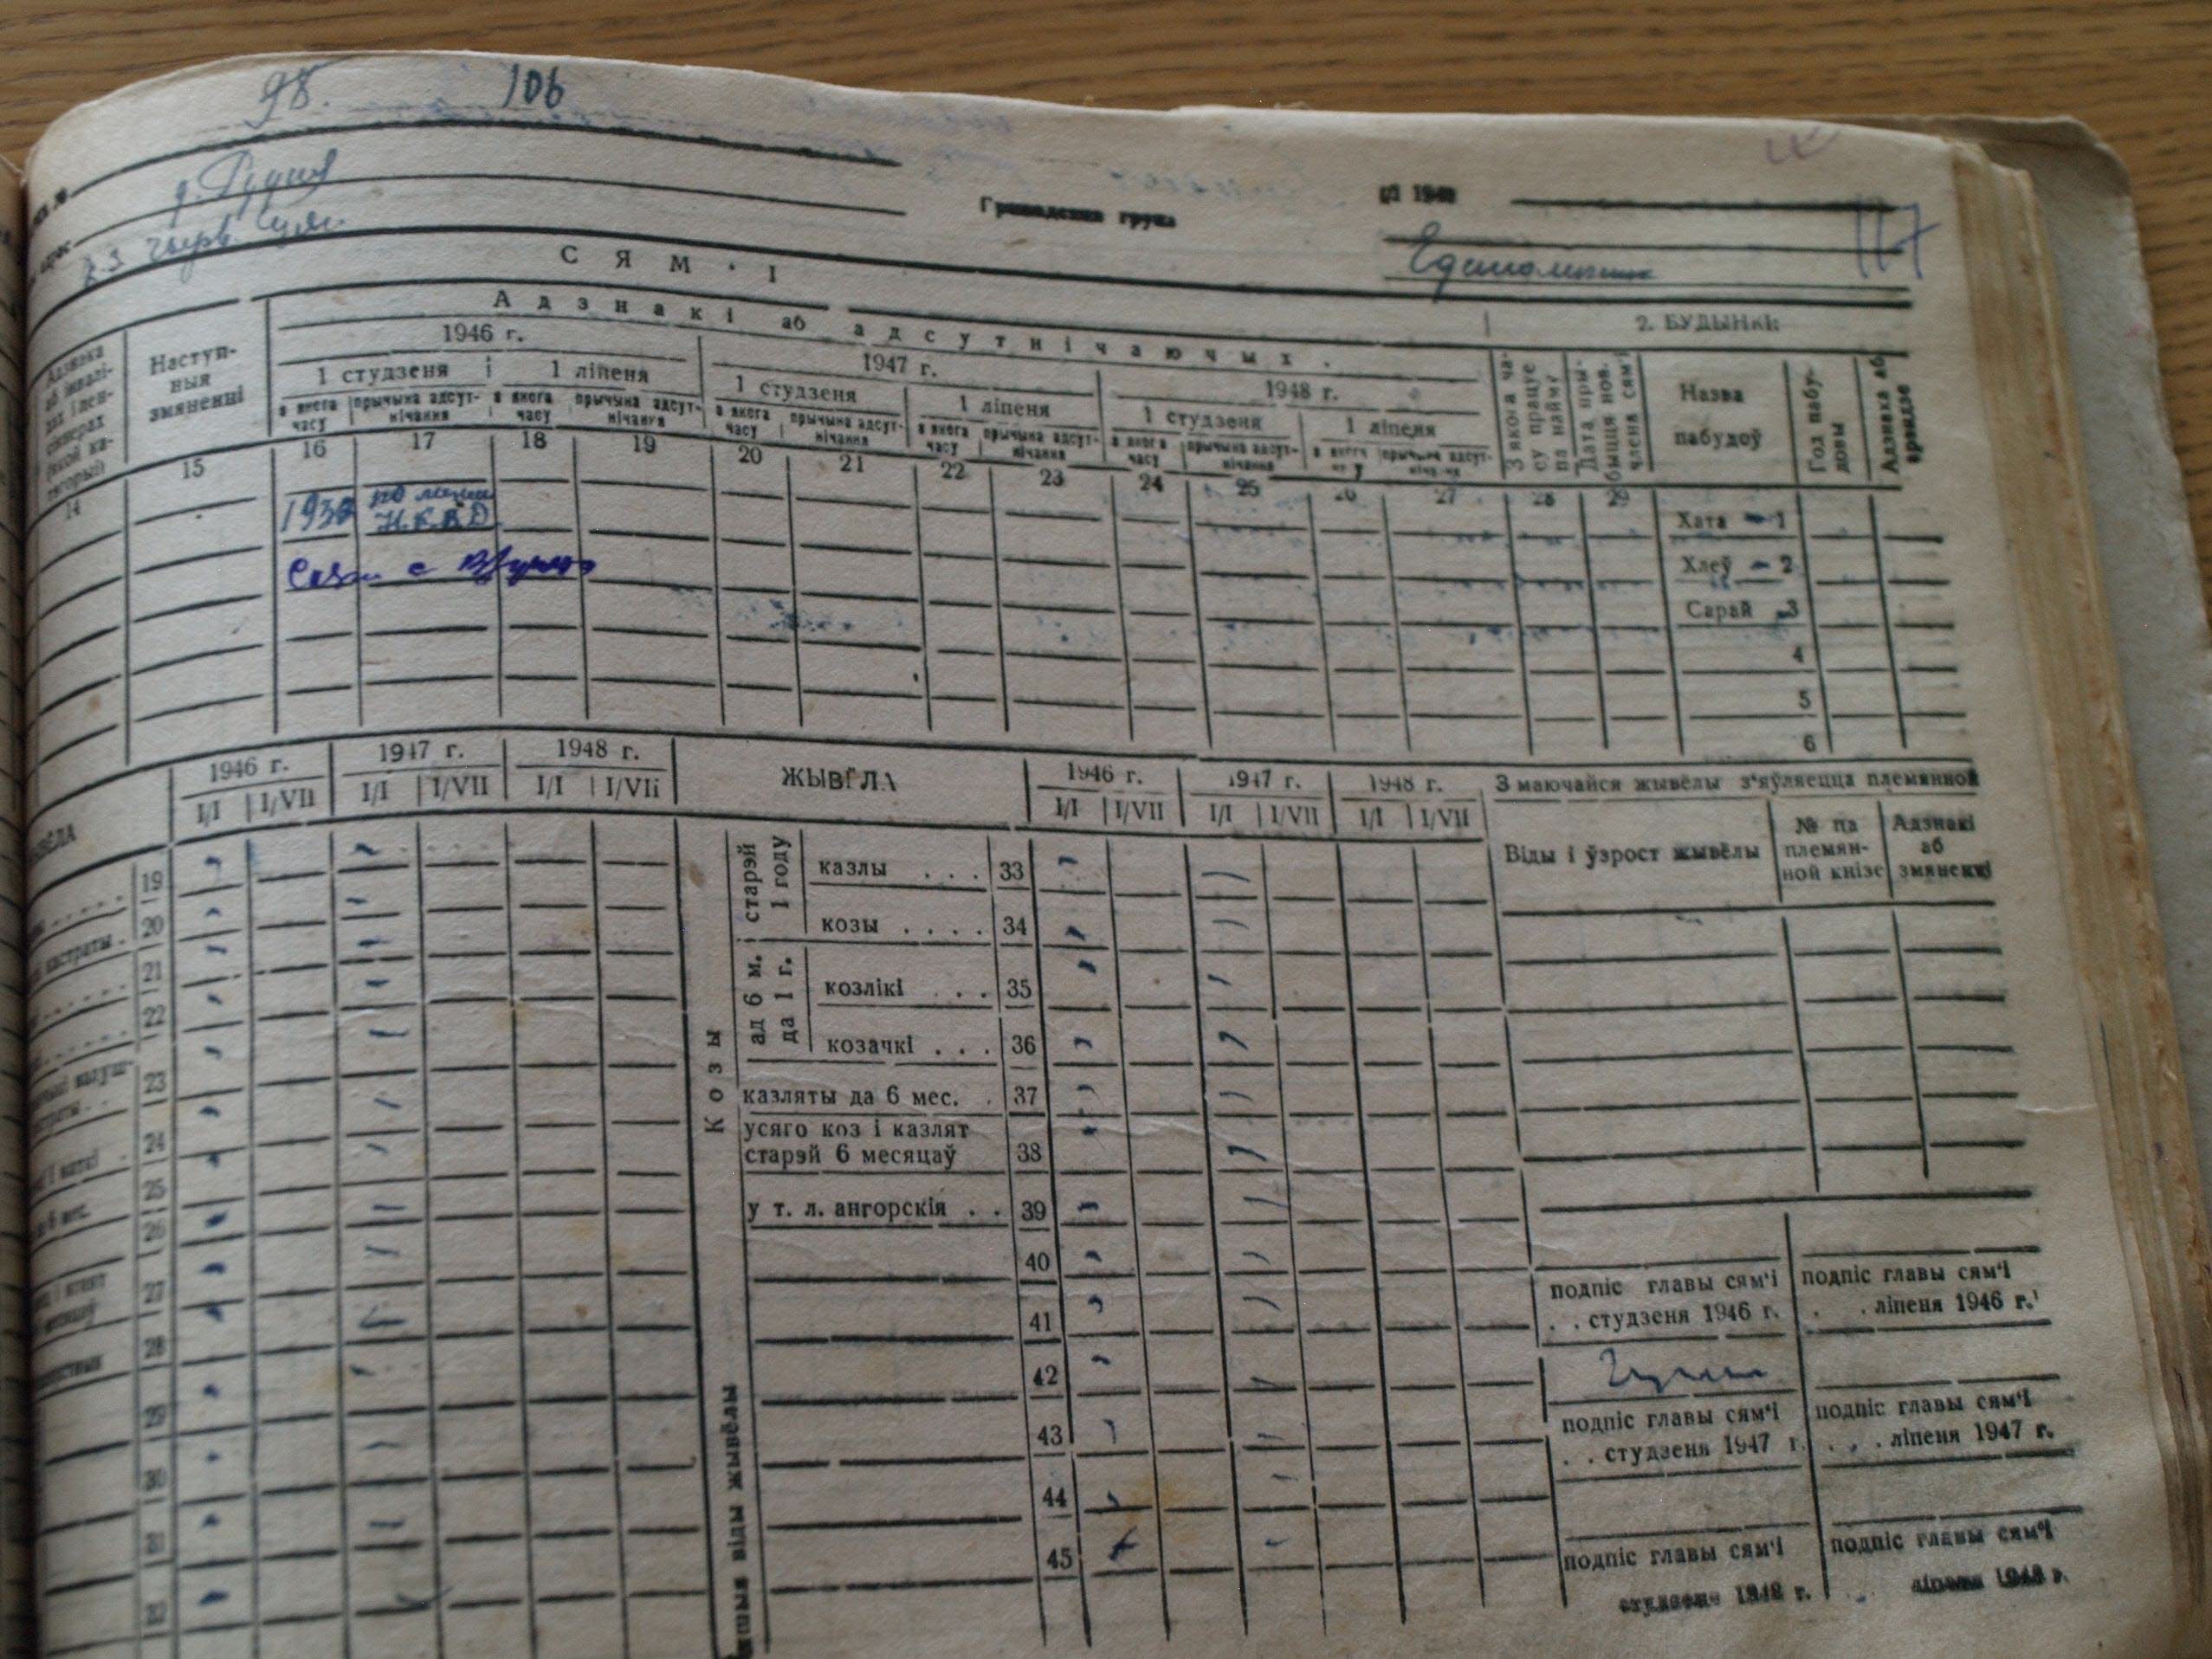 98. 106
адрас
Грамадская група
117
СЯМ'І
Адзнакі аб адсутнічаючых.
2. БУДЫНКІ
Наступ-
ныя
змяненні
1946 г.
1947 г.
1948 г.
1 студзеня 1 ліпеня 1 студзеня 1 ліпеня 1 студзеня 1 ліпеня
з якога часу прычына адсут-нічання з якога часу прычына адсут-нічання з якога часу прычына адсут-нічання з якога часу прычына адсут-нічання з якога часу прычына адсут-нічання
З якога ча-
су працуе
па найму
Дата пры-
быцця нов.
члена сям'і
Назва
пабудоў
Год пабу-
довы
Адзнака аб
арэндзе
14 15 16 17 18 19 20 21 22 23 24 25 26 27 28 29
193 по линии
Н.К.В.Д.
Хата - 1
Хлеў - 2
Сарай - 3
4
5
6
1946 г. 1947 г. 1948 г. ЖЫВЁЛА 1946 г. 1947 г. 1948 г. З маючайся жывёлы з'яўляецца племянной
I/I I/VII I/I I/VII I/I I/VII I/I I/VII I/I I/VII I/I I/VII
Віды і ўзрост жывёлы
№ па
племян-
ной кнізе
Адзнакі
аб
змяненні
19
20
21
22
23
24
25
26
27
28
29
30
31
32
Козы
старэй
1 году
казлы . . . 33
козы . . . . 34
ад 6 м.
да 1 г.
козлікі . . . 35
козачкі . . . 36
казляты да 6 мес. . 37
усяго коз і казлят
старэй 6 месяцаў 38
у т. л. ангорскія . . 39
віды жывёлы
40
41
42
43
44
45
подпіс главы сям'і
. . студзеня 1946 г.
подпіс главы сям'і
. . ліпеня 1946 г.
подпіс главы сям'і
. . студзеня 1947 г.
подпіс главы сям'і
. . . ліпеня 1947 г.
подпіс главы сям'і
студзеня 1948 г.
подпіс главы сям'і
ліпеня 1948 г.